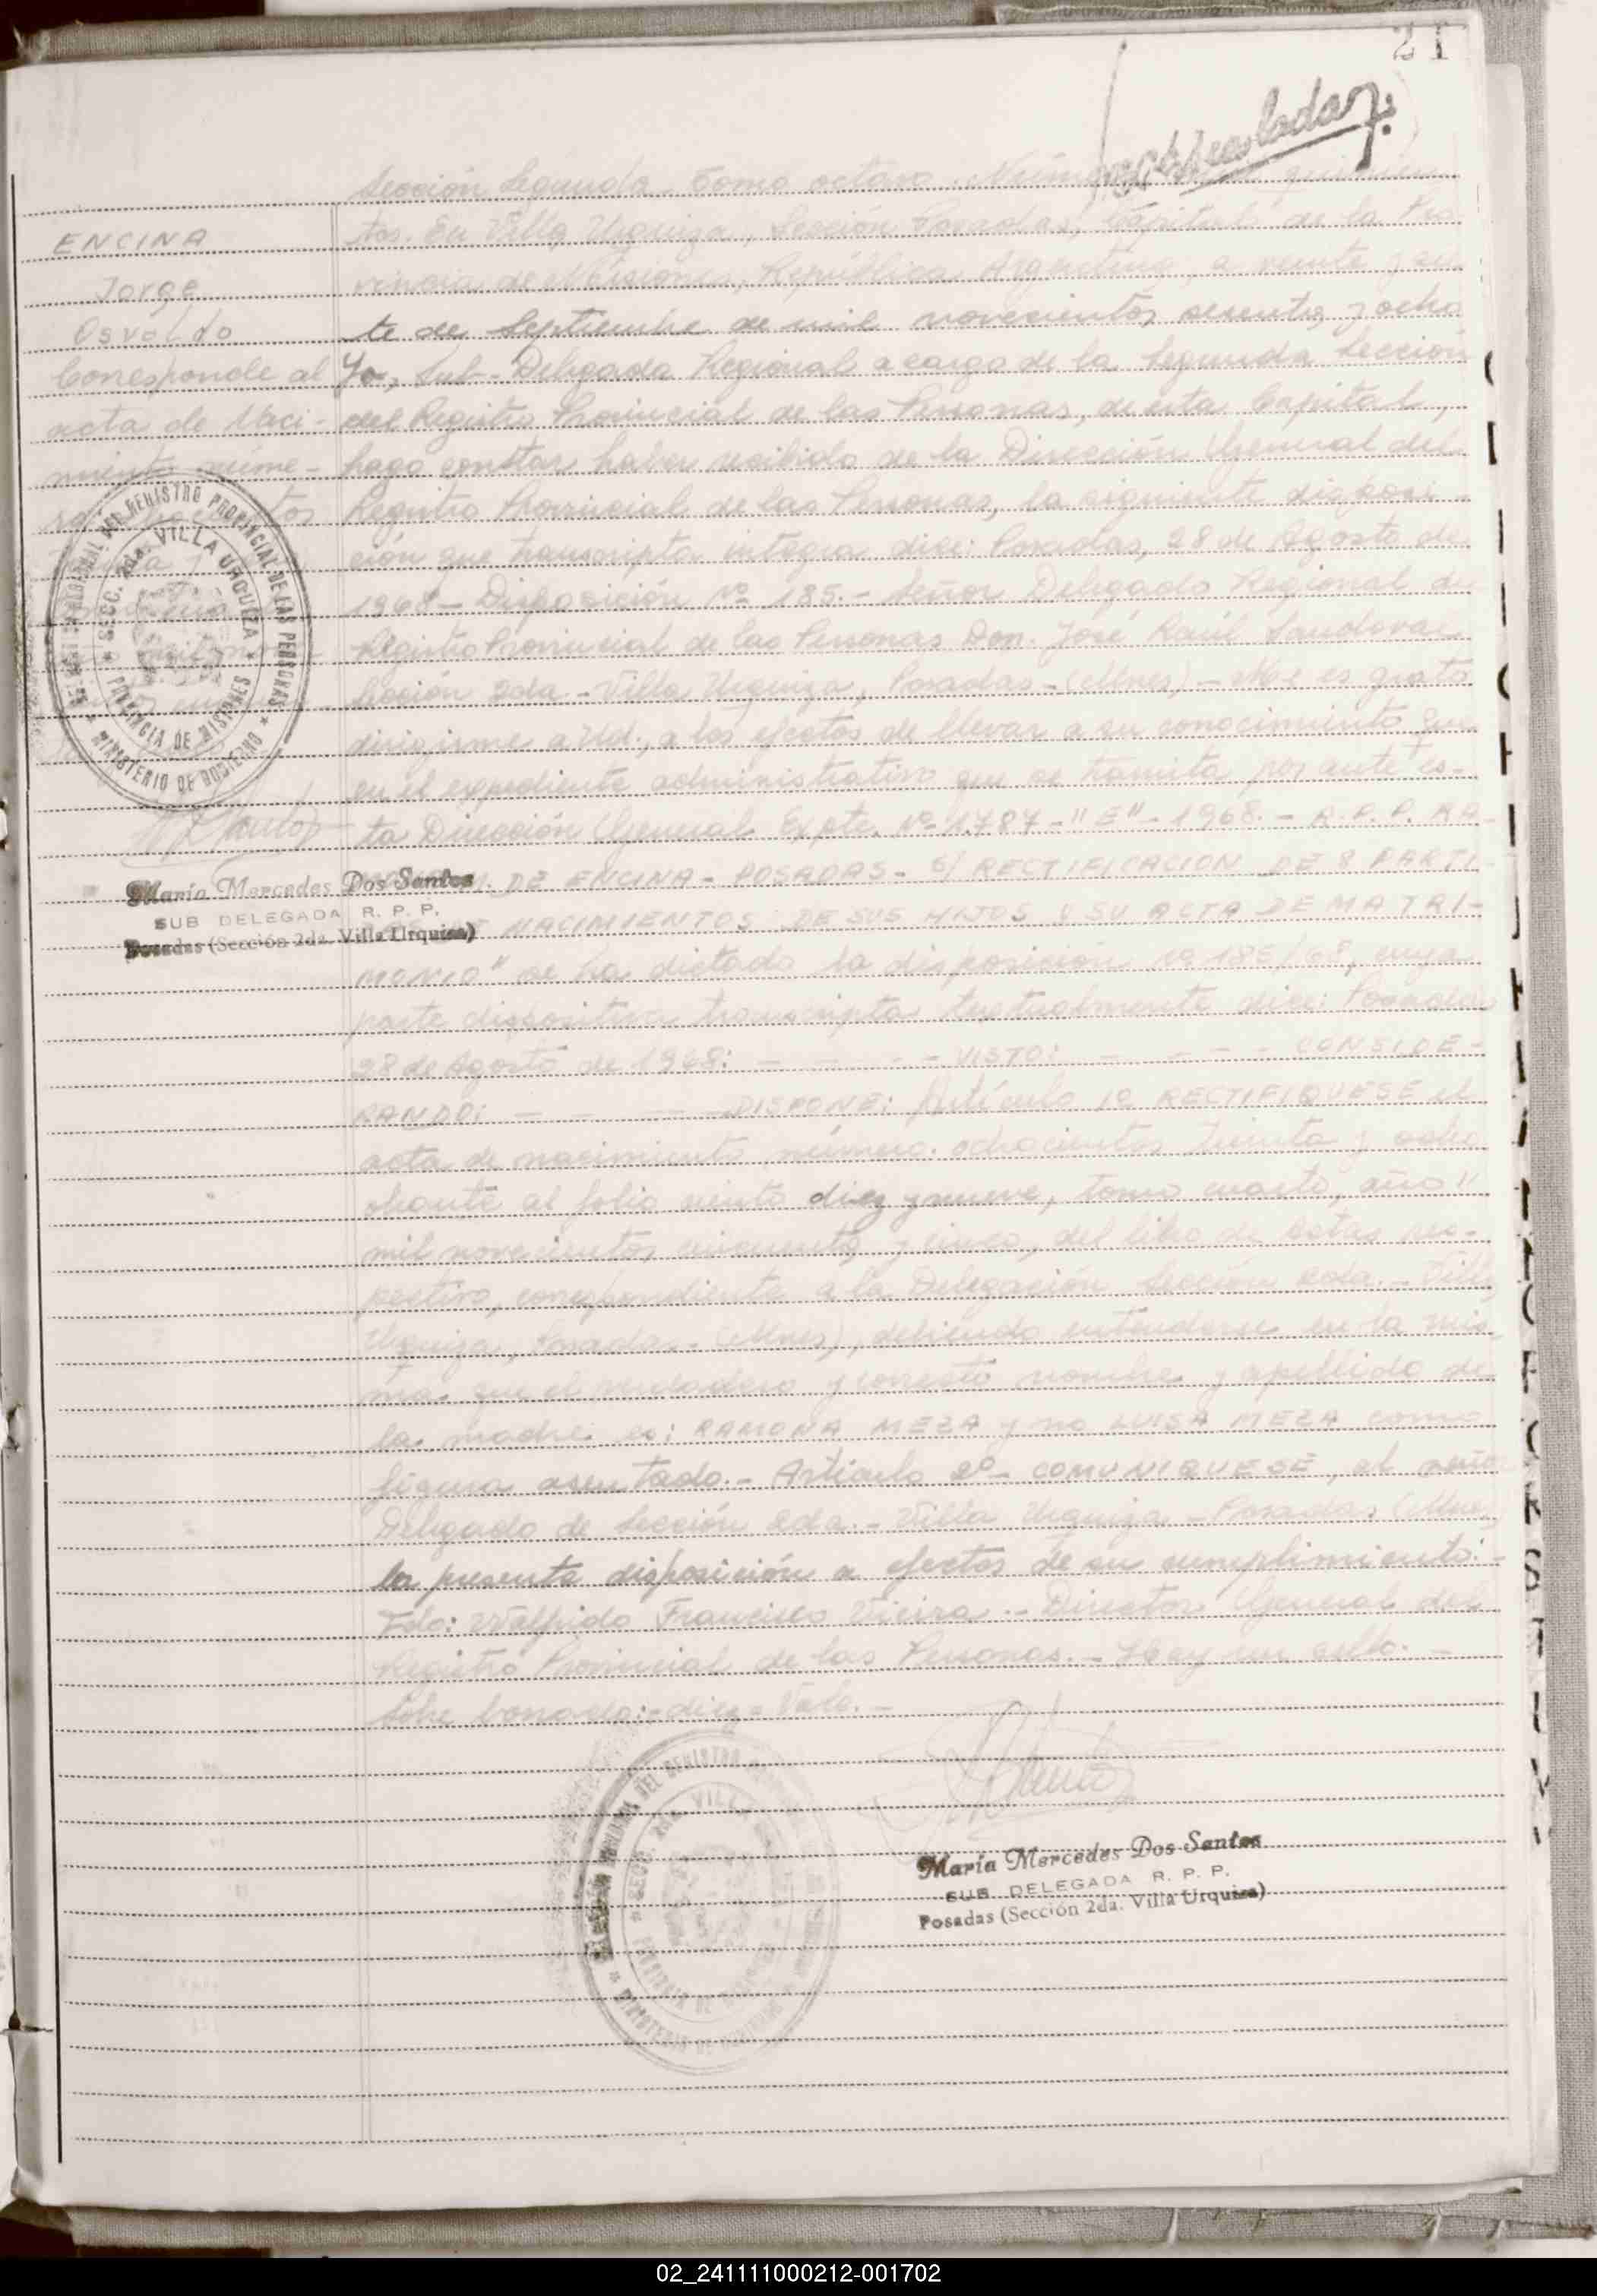 21
Trasladar
Sección Segunda. Tomo octavo.
tos. En Villa Urquiza, Sección Posadas, Capital de la Pro
vincia de Misiones, República Argentina, a veinte y sie
te de Septiembre de mil novecientos sesenta y ocho
Yo, Sub-Delegada Regional a cargo de la Segunda Sección
del Registro Provincial de las Personas, de esta Capital,
hago constar haber recibido de la Dirección General del
Registro Provincial de las Personas, la siguiente disposi
ción que transcripta íntegra dice: Posadas, 28 de Agosto de
1968 - Disposición Nº 185.- Señor Delegado Regional del
Registro Provincial de las Personas Don. José Raúl Sandoval
Sección 2da - Villa Urquiza, Posadas - (Mnes) - Me es grato
dirigirme a Ud., a los efectos de llevar a su conocimiento que
en el expediente administrativo que se tramita por ante es-
ta Dirección General Expte. Nº 1787 - "E" - 1968. - R.P.P. RA-
DE ENCINA - POSADAS - S/ RECTIFICACION DE 8 PARTI-
NACIMIENTOS DE SUS HIJOS Y SU ACTA DE MATRI-
MONIO" se ha dictado la disposición Nº 185/68, cuya
parte dispositiva transcripta textualmente dice: Posadas
28 de Agosto de 1968: - - - - VISTO: - - - - CONSIDE-
RANDO: - - - - DISPONE: Artículo 1º RECTIFIQUESE el
acta de nacimiento número: ochocientos treinta y ocho
obrante al folio ciento diez y nueve, tomo cuarto, año "
mil novecientos cincuenta y cinco, del libro de actas res-
pectivo, correspondiente a la Delegación Sección 2da. - Villa
Urquiza, Posadas - (Mnes), debiendo entenderse en la mis-
ma que el verdadero y correcto nombre y apellido de
la madre es: RAMONA MEZA y no LUISA MEZA como
figura asentado. - Artículo 2º - COMUNIQUESE, al señor
Delegado de Sección 2da. - Villa Urquiza - Posadas (Mnes)
la presente disposición a efectos de su cumplimiento. -
Fdo: Walfrido Francisco Vieira. - Director General del
Registro Provincial de las Personas. - Hay un sello. -
Sobre borrado: - diez = Vale. -
ENCINA
Jorge
Osvaldo
Corresponde al
acta de Naci-
miento núme-
SUB DELEGADA REGIONAL DEL REGISTRO PROVINCIAL DE LAS PERSONAS
* MINISTERIO DE GOBIERNO *
* SECC. 2da. VILLA URQUIZA *
PROVINCIA DE MISIONES
María Mercedes Dos Santos
SUB DELEGADA R. P. P.
Posadas (Sección 2da. Villa Urquiza)
María Mercedes Dos Santos
SUB DELEGADA R. P. P.
Posadas (Sección 2da. Villa Urquiza)
02_241111000212-001702